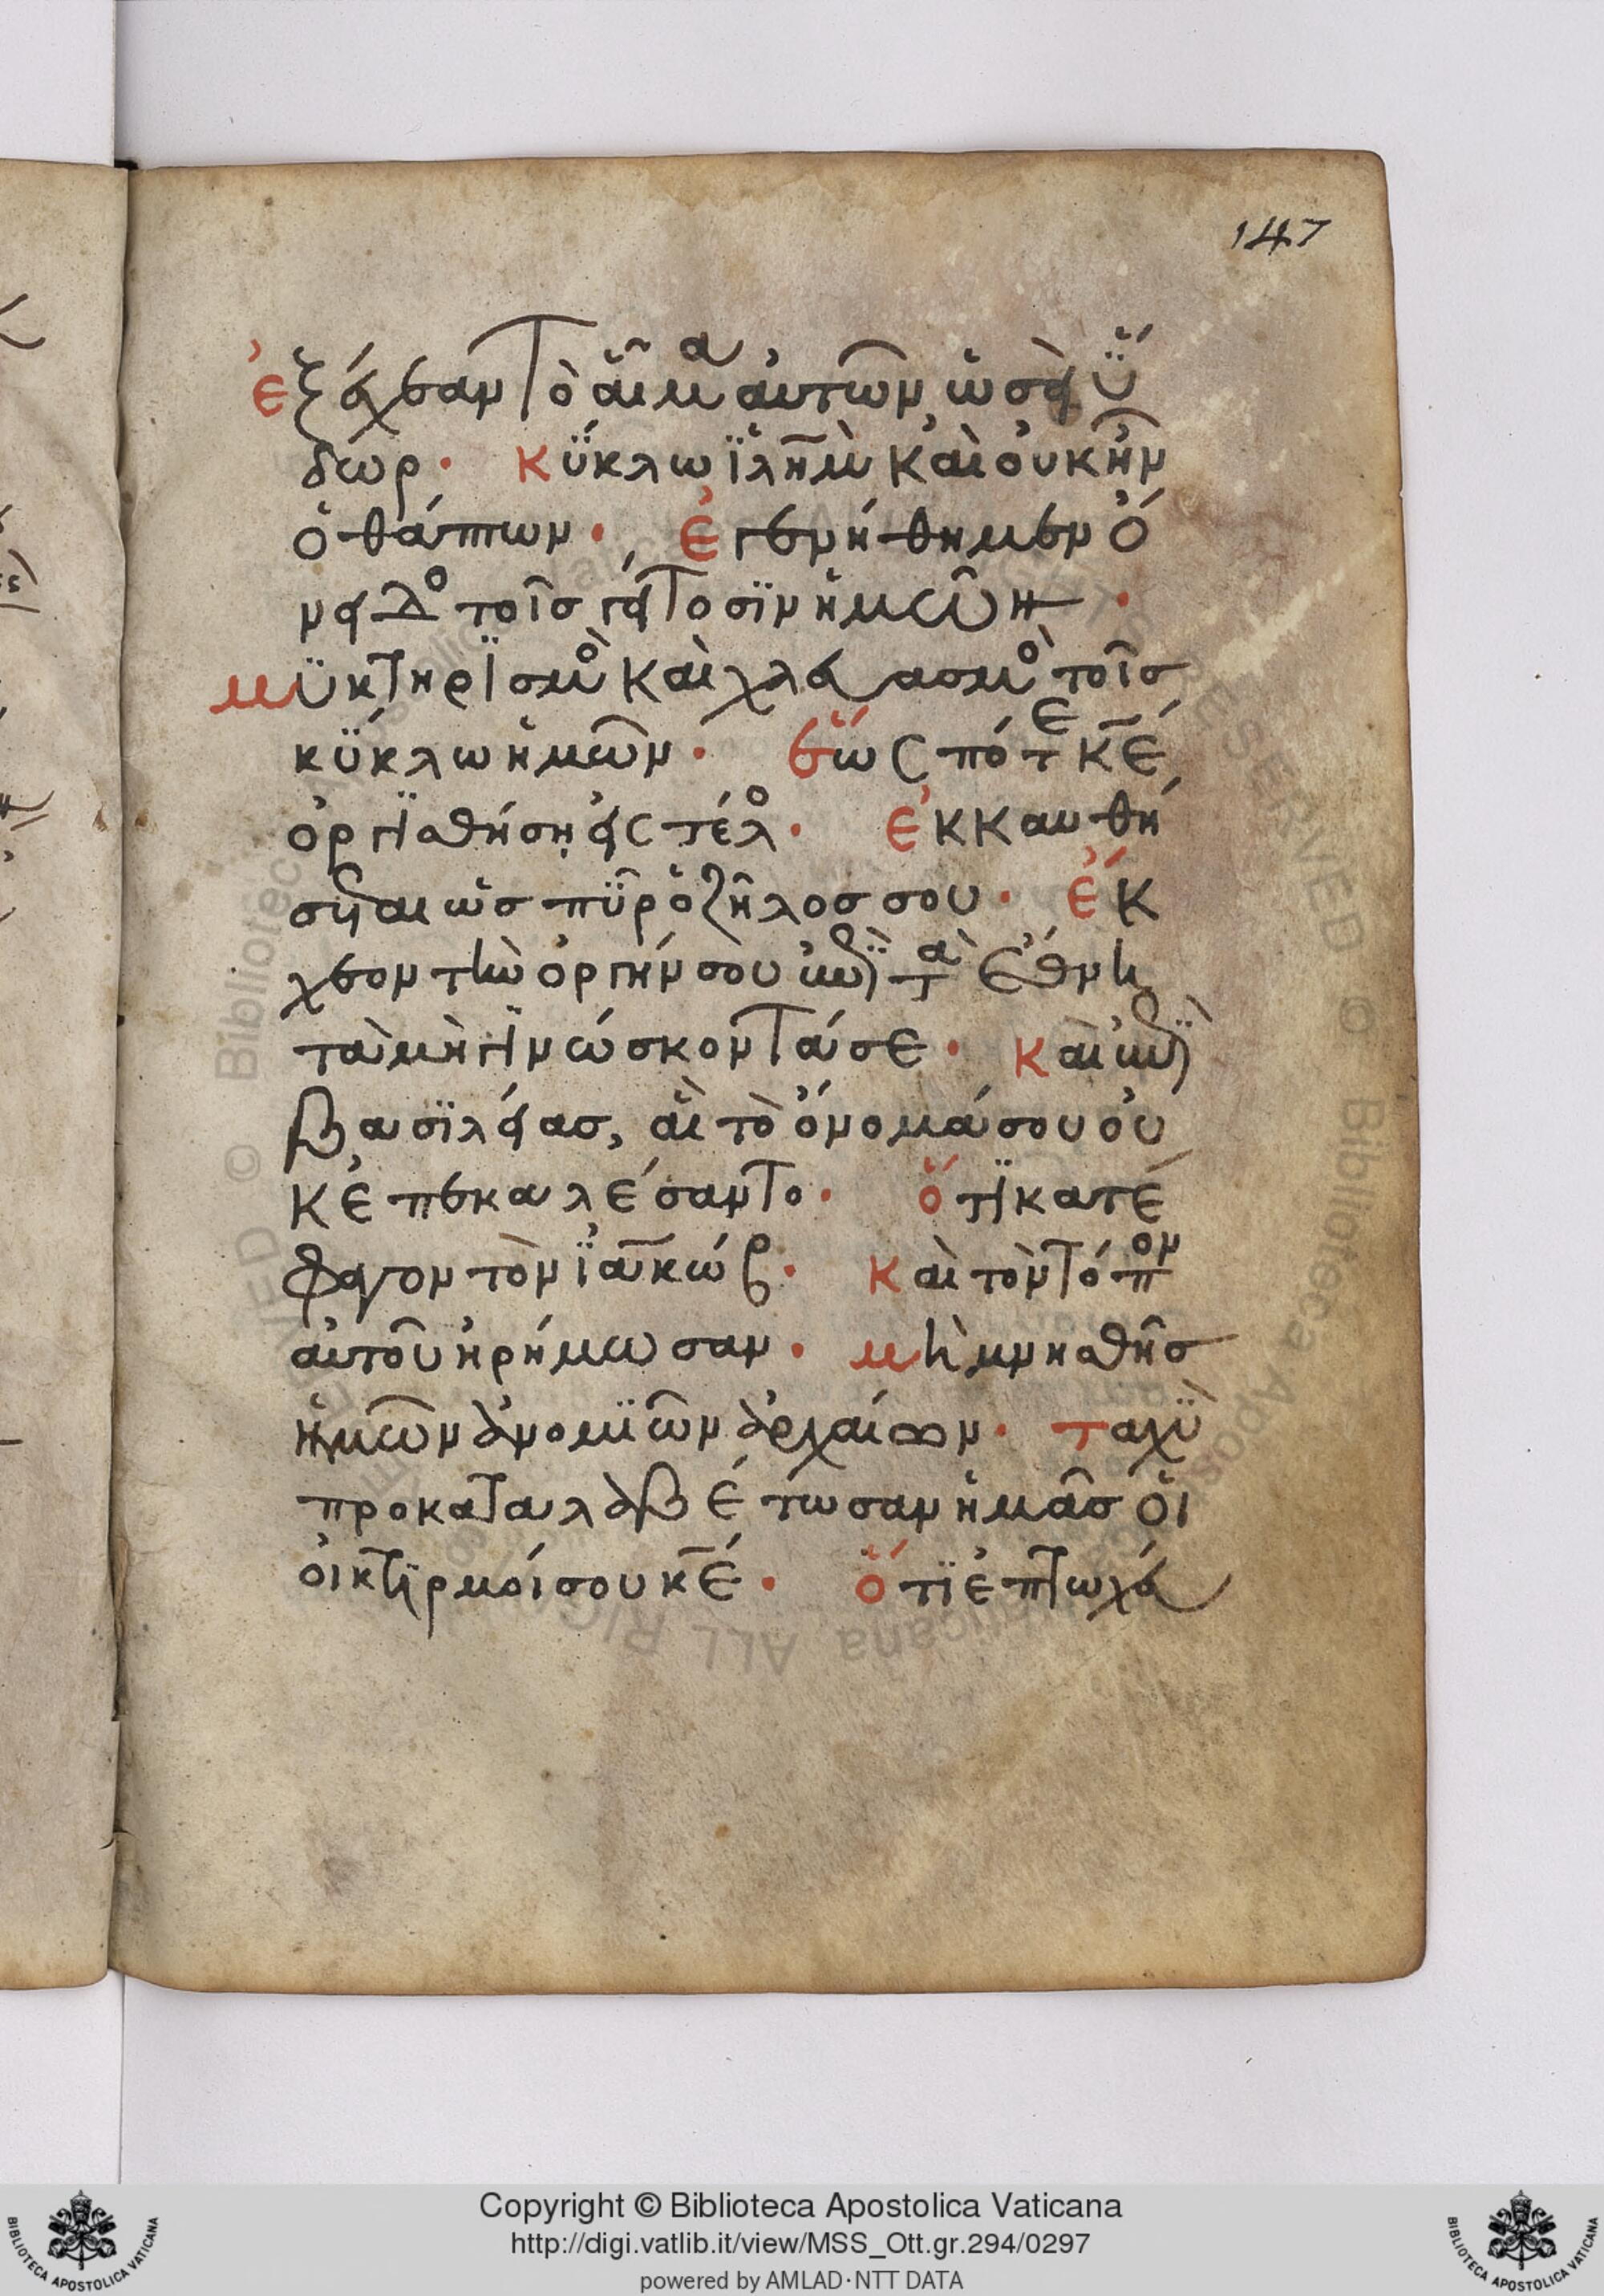 147
ἐξέχεαν τὸ αἷμα αὐτῶν ὡσεὶ ὕ
δωρ· κύκλω ἰλῆμ καὶ οὐκ ἦν
ὁ θάπτων· ἐγενήθημεν ὄ
νειδο τοῖσ γείτοσϊν ἡμῶν·
μϋκτηρϊσμὸ καὶ χλευασμὸ τοῖσ
κύκλω ἡμῶν· ἕως πότε κε̄
ὀργϊσθήση εἰς τέλο· ἐκκαυθή
σεται ὡσ πῦρ ὁ ζῆλοσ σου· ἔκ
χεον τὴν ὀργήν σου ἐπὶ τὰ ἔθνη
τὰ μὴ γϊνώσκοντά σε· καὶ ἐπὶ
βασϊλείασ, αἳ τὸ ὄνομά σου οὐ
κ ἐπεκαλέσαντο· ὅτϊ κατέ
φαγον τὸν ἰακώβ· καὶ τὸν τόπον
αὐτοῦ ἠρήμωσαν· μὴ μνησθῆσ
ἡμῶν ἀνομϊῶν ἀρχαίων· ταχὺ
προκαταλαβέτωσαν ἡμᾶσ οἱ
οἰκτιρμοί σου κε̄· ὅτϊ ἐπτωχεύ
Copyright © Biblioteca Apostolica Vaticana
http://digi.vatlib.it/view/MSS_Ott.gr.294/0297
powered by AMLAD·NTT DATA
BIBLIOTECA APOSTOLICA VATICANA
BIBLIOTECA APOSTOLICA VATICANA